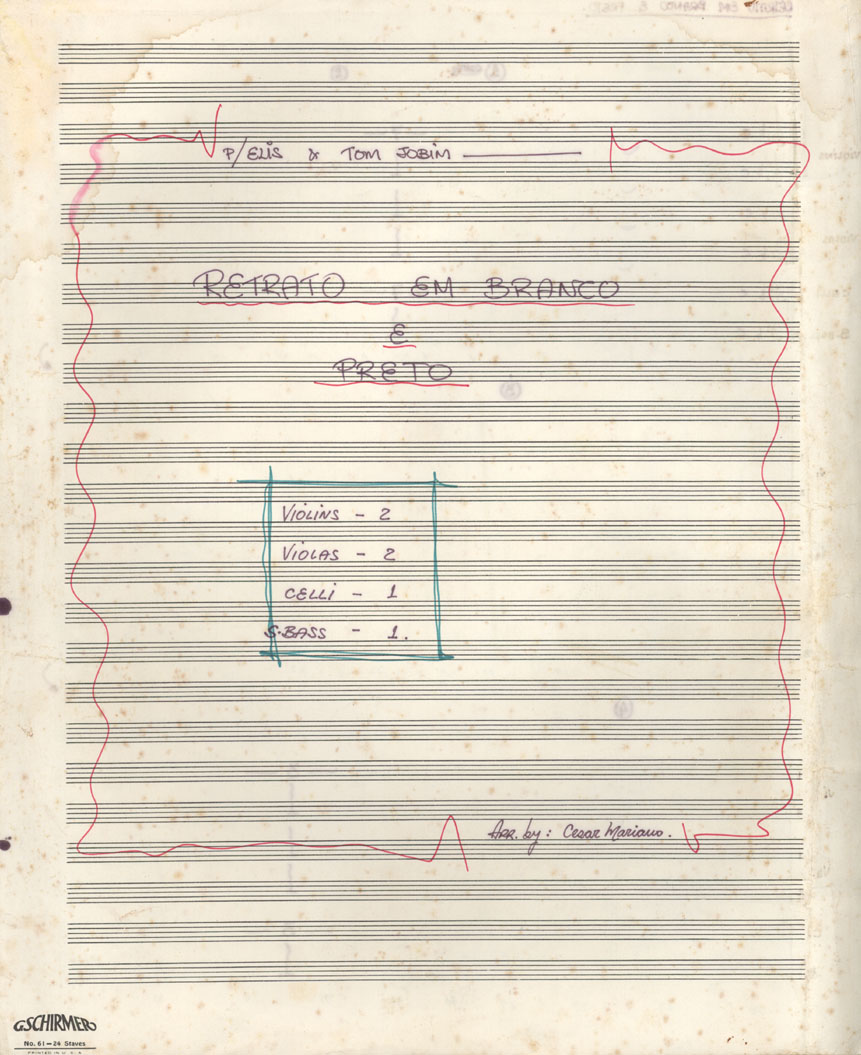 P/ELIS & TOM JOBIM
RETRATO EM BRANCO
E
PRETO
VIOLINS - 2
VIOLAS - 2
CELLI - 1
S.BASS - 1.
ARR. by: Cesar Mariano.
G. SCHIRMER
No. 61—24 Staves
PRINTED IN U. S. A.